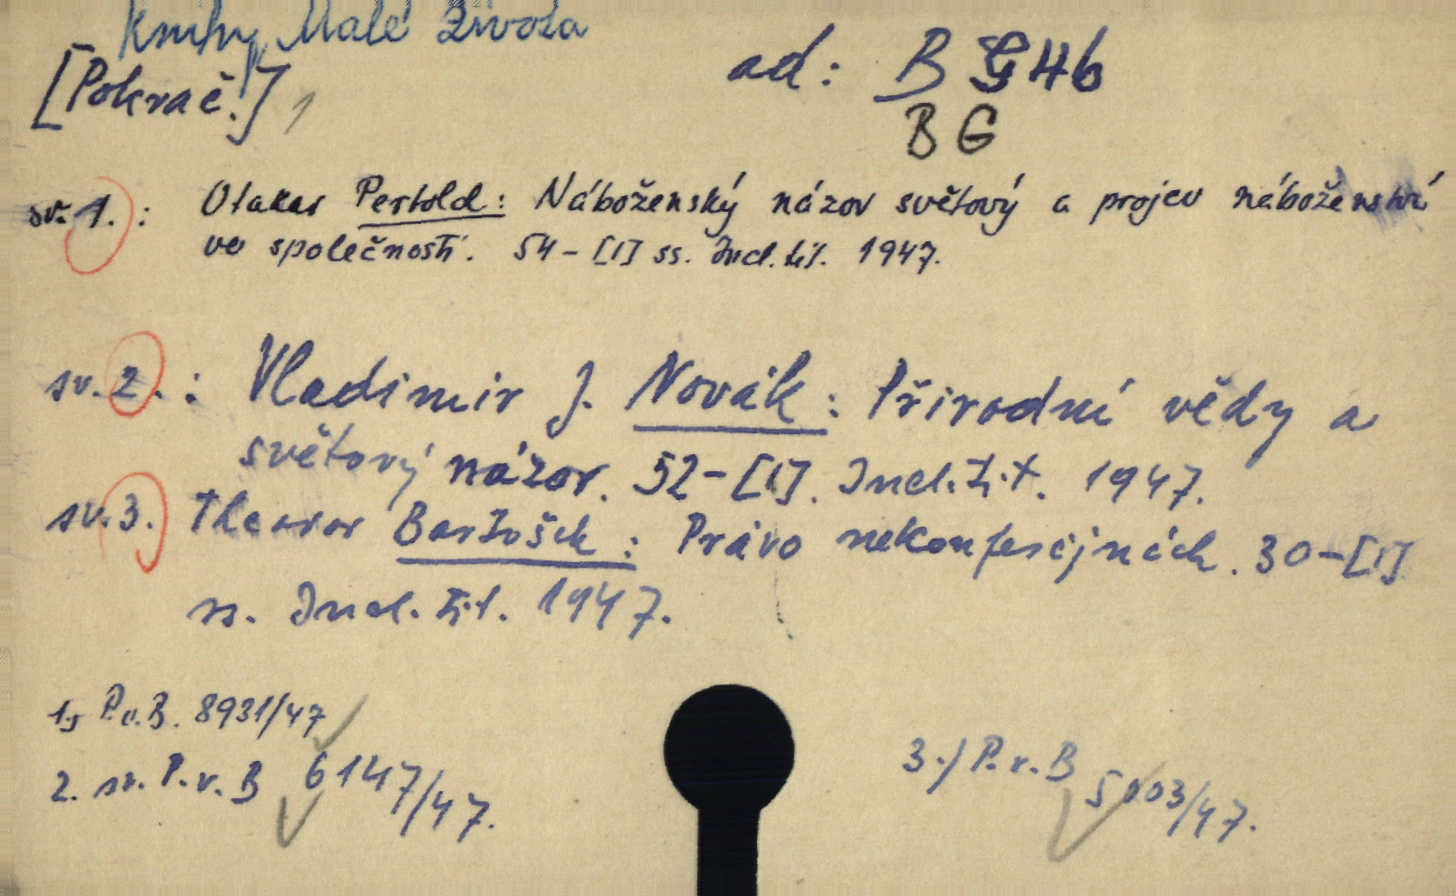 Knihy Malé Života
[Pokrač.] 1
ad: B G 46
B G
sv. 1. : Otakar Pertold: Náboženský názor světový a projev náboženství
ve společnosti. 54-[1] ss. Incl. tit. 1947.
sv. 2. : Vladimir J. Novák: Přírodní vědy a
světový názor. 52-[1]. Incl. tit. 1947.
sv. 3. Theodor Bartošek: Právo nekonfesijních. 30-[1]
ss. Incl. tit. 1947.
1.) P.v.B. 8931/47
2. sv. P.v.B 6147/47.
3.) P.v.B 5003/47.